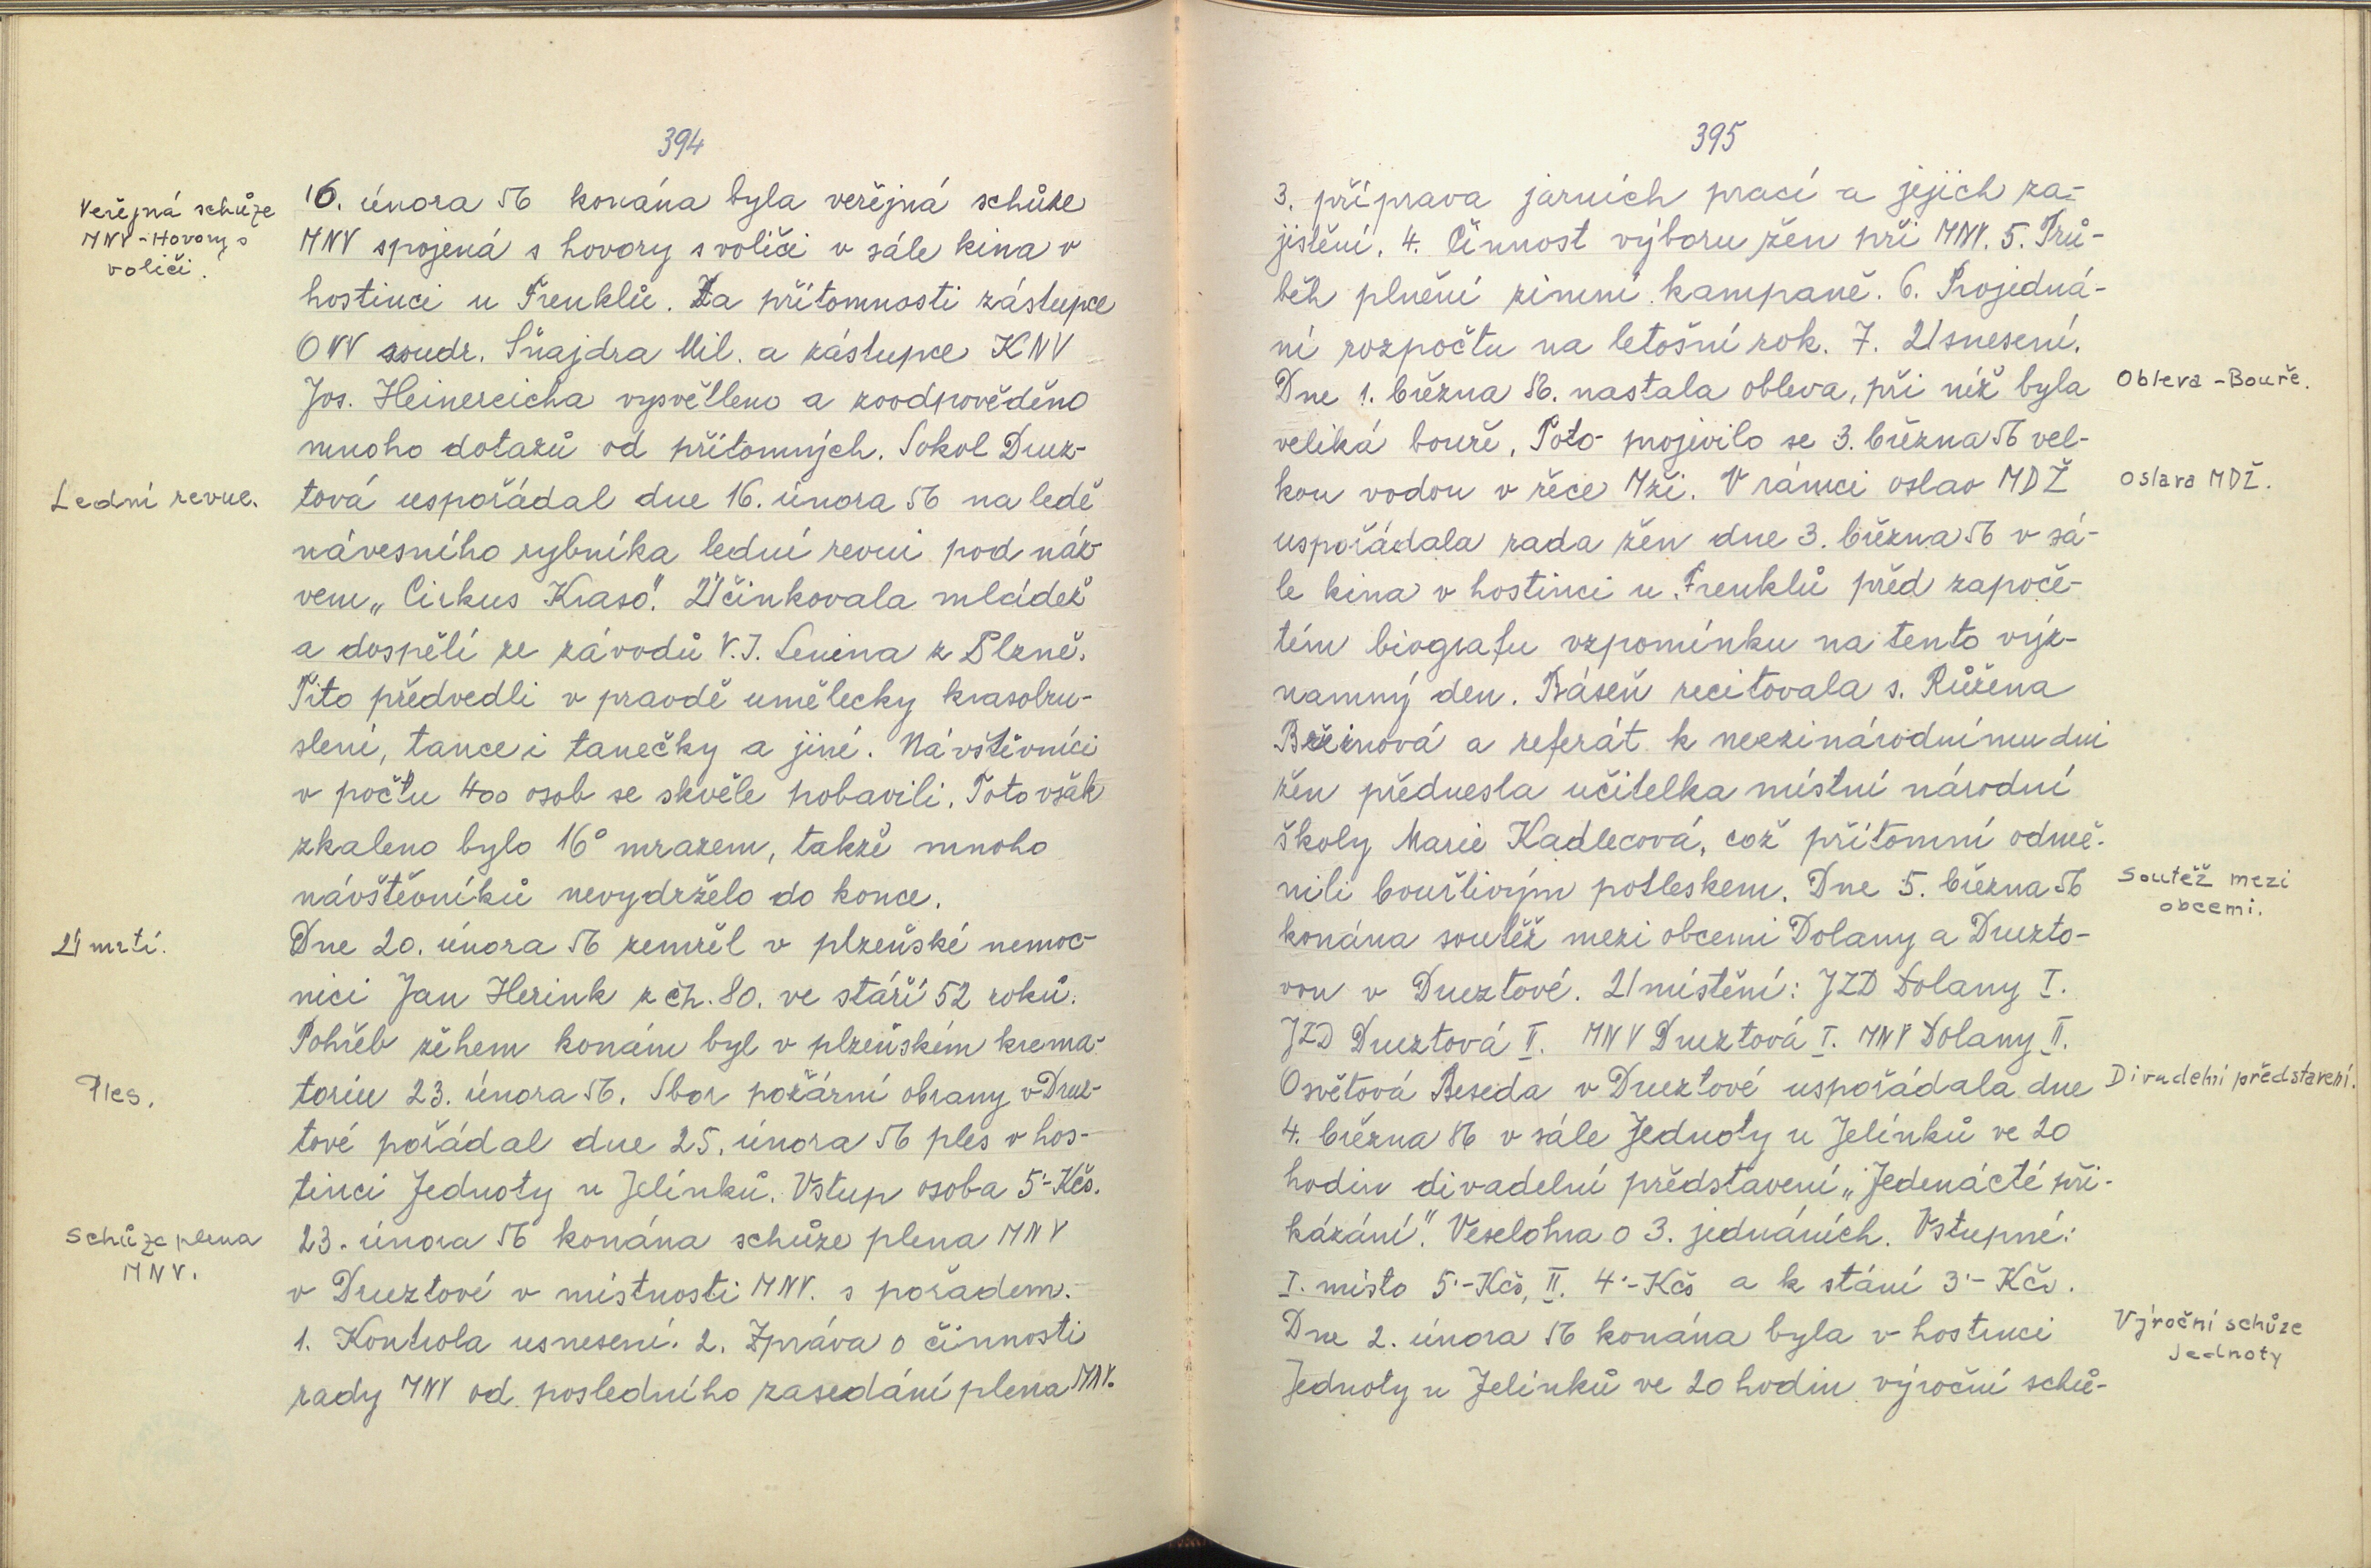 394
Veřejná schůze
MNV - Hovory s
voliči.
16. února 56 konána byla veřejná schůze
MNV spojená s hovory s voliči v sále kina v
hostinci u Frenklů. Za přítomnosti zástupce
ONV soudr. Šnajdra Mil. a zástupce KNV
Jos. Heinereicha vysvětleno a zoodpověděno
mnoho dotazů od přítomných. Sokol Druz-
Lední revue.
tová uspořádal dne 16. února 56 na ledě
návesního rybníka lední revui pod náz-
vem „Cirkus Kraso". Účinkovala mládež
a dospělí ze závodů V.I. Lenina z Plzně.
Tito předvedli v pravdě umělecky krasobru-
slení, tance i tanečky a jiné. Návštěvníci
v počtu 400 osob se skvěle pobavili. Toto však
zkaleno bylo 16° mrazem, takže mnoho
návštěvníků nevydrželo do konce.
Úmrtí.
Dne 20. února 56 zemřel v plzeňské nemoc-
nici Jan Herink z čh. 80. ve stáří 52 roků.
Pohřeb žehem konám byl v plzeňském krema-
Ples.
toriu 23. února 56. Sbor požární obrany v Druz-
tové pořádal dne 25. února 56 ples v hos-
tinci Jednoty u Jelínků. Vstup osoba 5'-Kčs.
Schůze plena
MNV.
23. února 56 konána schůze plena MNV
v Druztové v místnosti MNV. s pořadem.
1. Kontrola usnesení. 2. Zpráva o činnosti
rady MNV od posledního zasedání plena MNV.
395
3. příprava jarních prací a jejich za-
jistění. 4. Činnost výboru žen při MNV. 5. Prů-
běh plnění zimní kampaně. 6. Projedná-
ní rozpočtu na letošní rok. 7. Usnesení.
Dne 1. března 56. nastala obleva, při níž byla
Obleva - Bouře.
veliká bouře. Toto projevilo se 3. března 56 vel-
kou vodou v řece Mži. V rámci oslav MDŽ
Oslava MDŽ.
uspořádala rada žen dne 3. března 56 v sá-
le kina v hostinci u Frenklů před započe-
tém biografu vzpomínku na tento výz-
namný den. Báseň recitovala s. Růžena
Březinová a referát k mezinárodnímu dni
žen přednesla učitelka místní národní
školy Marie Kadlecová, což přítomní odmě-
nili bouřlivým potleskem. Dne 5. března 56
Soutěž mezi
obcemi.
konána soutěž mezi obcemi Dolany a Druzto-
vou v Druztové. Umístění: JZD Dolany I.
JZD Druztová II. MNV Druztová I. MNV Dolany II.
Osvětová Beseda v Druztové uspořádala dne
Divadelní představení.
4. března 56 v sále Jednoty u Jelínků ve 20
hodin divadelní představení „Jedenácté při-
kázání". Veselohra o 3. jednáních. Vstupné:
I. místo 5'-Kčs, II. 4'-Kčs a k stání 3'-Kčs.
Dne 2. února 56 konána byla v hostinci
Výroční schůze
Jednoty
Jednoty u Jelínků ve 20 hodin výroční schů-